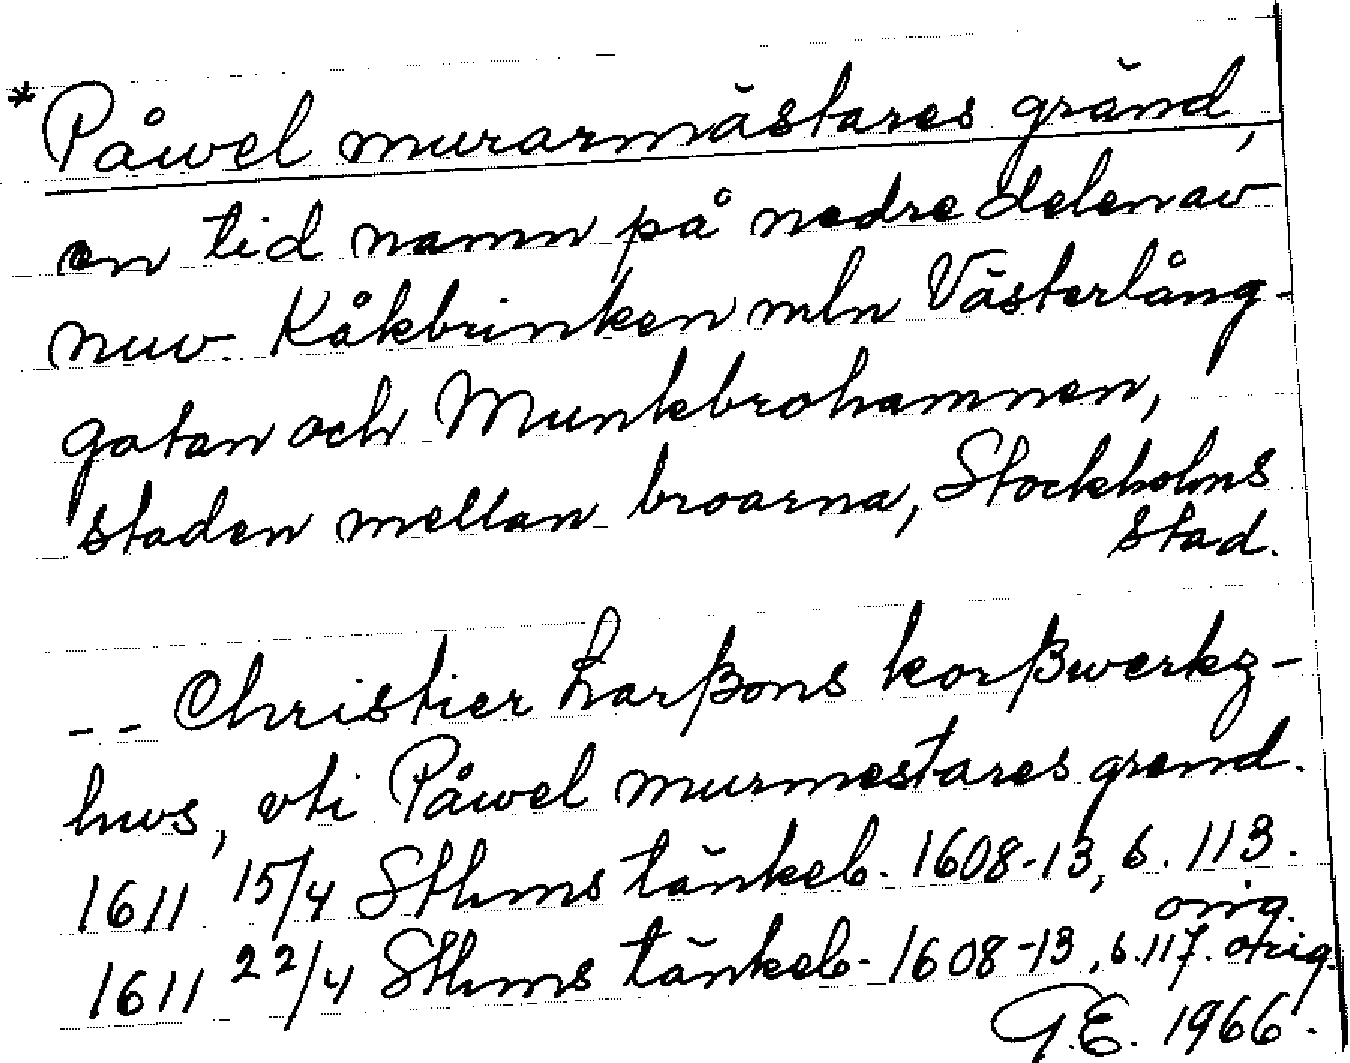 * Påwel murarmästares gränd,
en tid namn på nedre delen av
nuv. Kåkbrinken mln Västerlång-
gatan och Munkbrohamnen,
staden mellan broarna, Stockholms
stad.
-- Christier Larßons korßwerkz-
huus, vti Påwel murmestares grend.
1611 15/4 Sthms tänkeb. 1608-13, s. 113.
orig.
1611 22/4 Sthms tänkeb. 1608-13, s. 117. orig.
G.E. 1966.